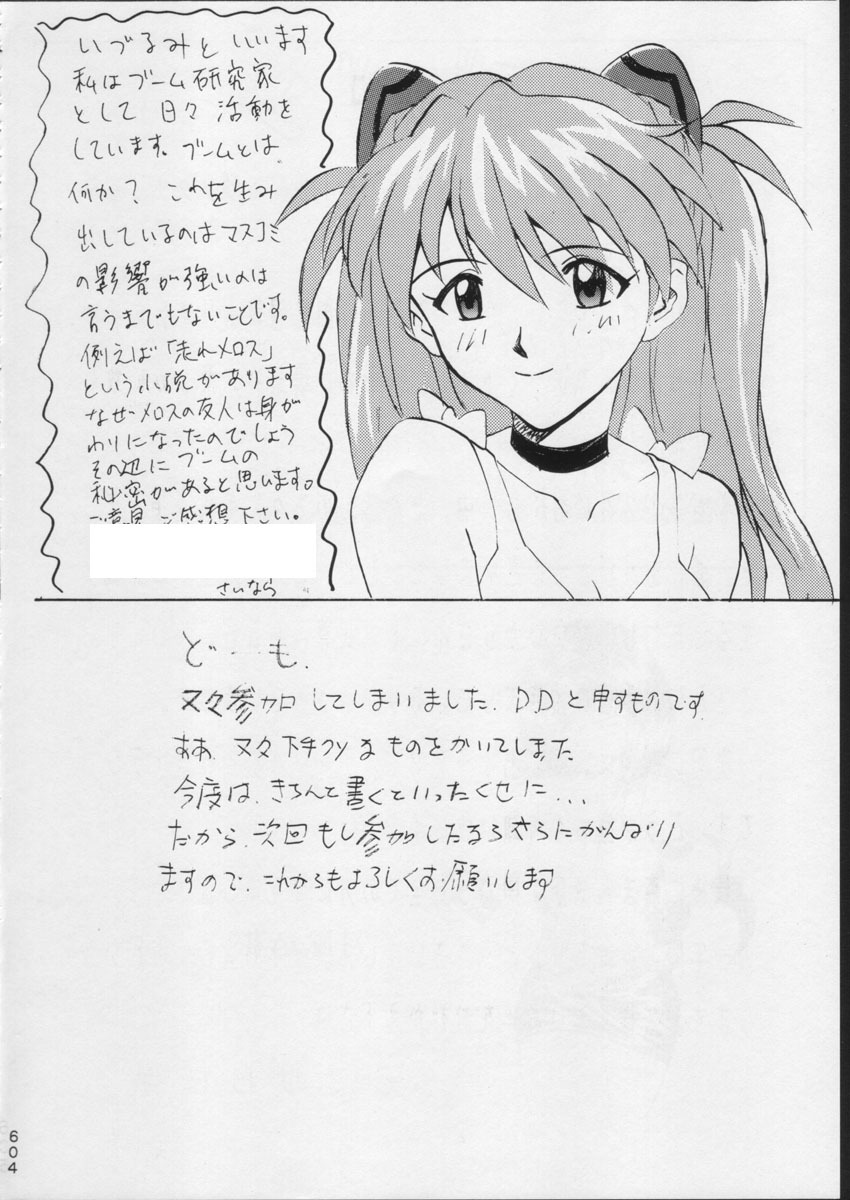 いづるみと いいます
私はブーム研究家
として 日々 活動を
しています。ブームとは
何か？ これを生み
出しているのはマスコミ
の影響が強いのは
言うまでもないことです。
例えば「走れメロス」
という小説があります
なぜメロスの友人は身が
わりになったのでしょう
その辺に ブームの
秘密があると思います。
ご意見 ご感想 下さい。
さいなら
ど……も、
又々参加してしまいました、D.Dと申すものです
ああ、又々下手クソなものをかいてしました
今度は、きちんと書くといったくせに...
だから、次回もし参加したならさらにがんばり
ますので、これからもよろしくお願いします
604